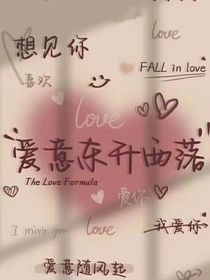 想见你
love
FALL in love
喜欢
love
爱意东升西落
The Love Formula
爱你
I miss you
love
我爱你
爱意随风起